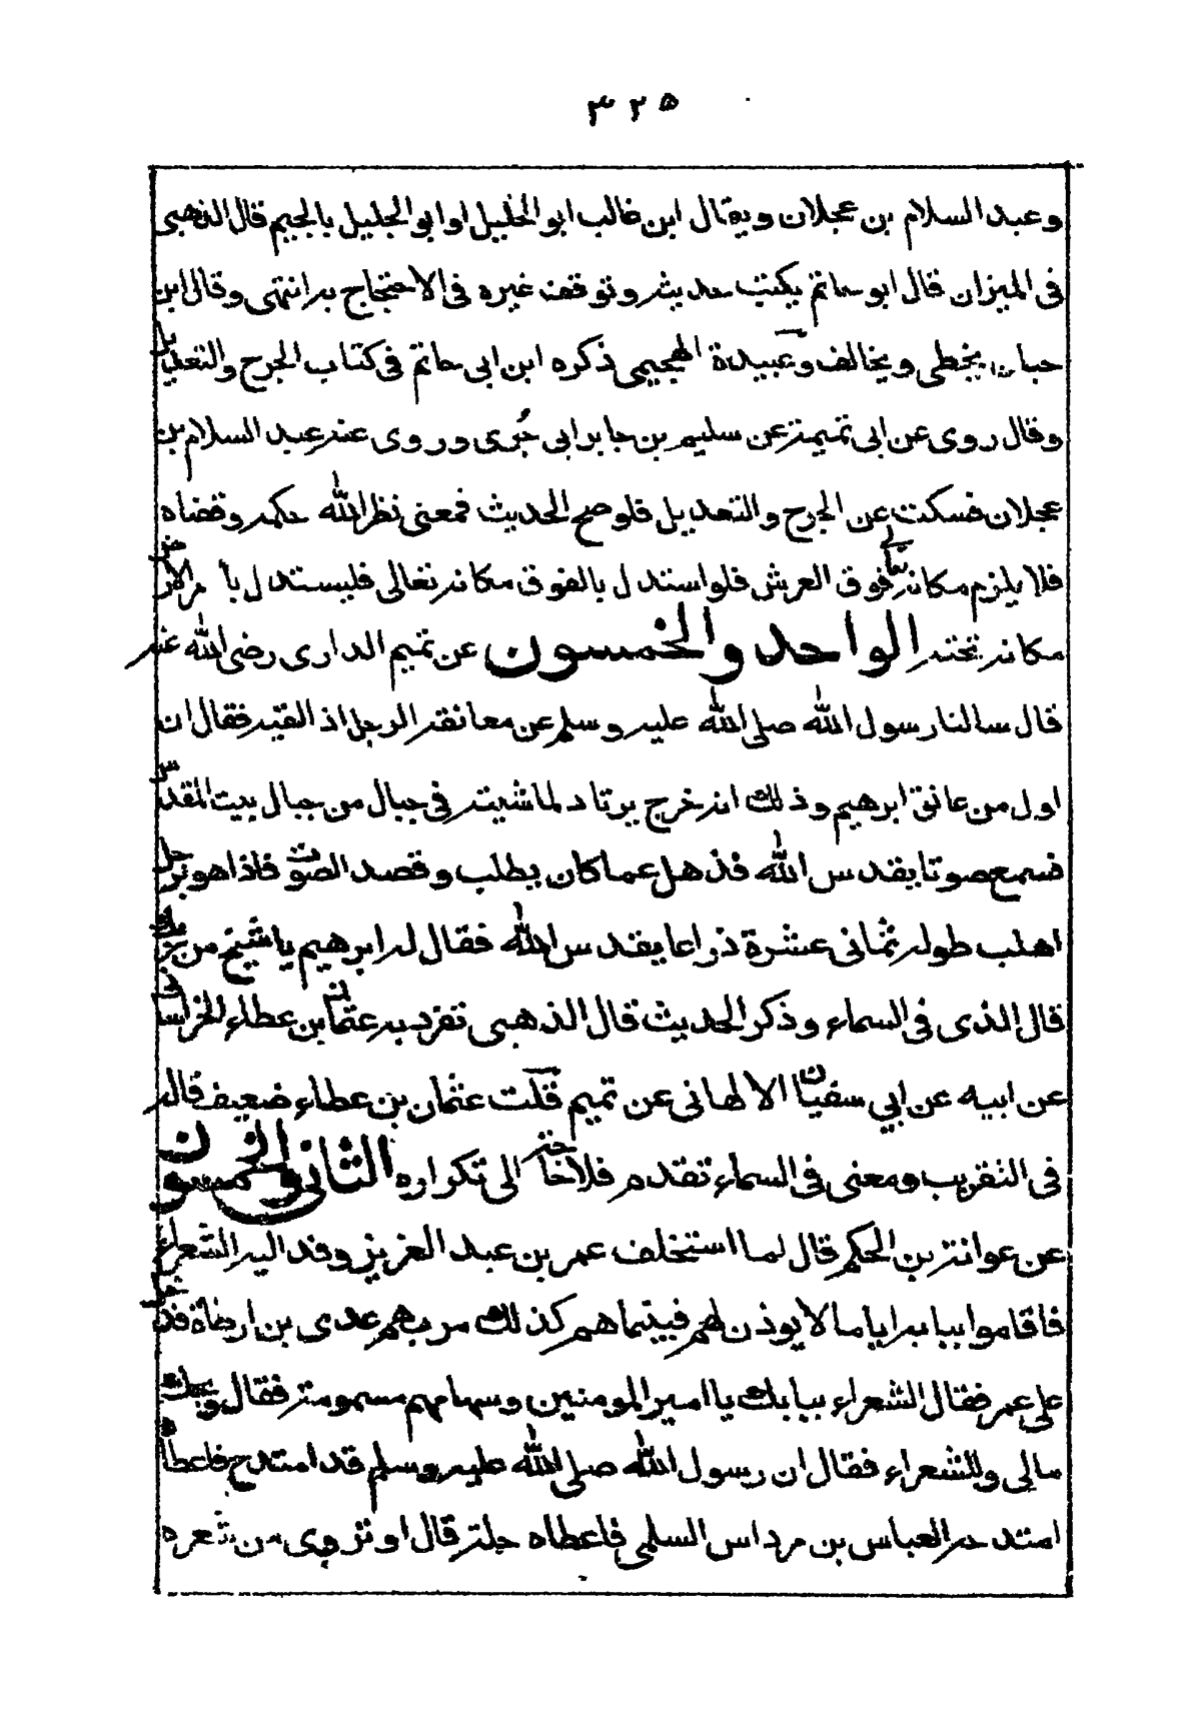 ٣٢٥
وعبد السلام بن عجلان ويقال ابن غالب ابو الخليل او ابو الجليل بالجيم قال الذهبى
فى الميزان قال ابو حاتم يكتب حديثه وتوقف غيره فى الاحتجاج به انتهى وقال ابن
حبان يخطى ويخالف وعبيدة الهجيمى ذكره ابن ابى حاتم فى كتاب الجرح والتعديل
وقال روى عن ابى تميمة عن سليم بن جابر ابى جُرى وروى عنه عبد السلام بن
عجلان فسكت عن الجرح والتعديل فلو صح الحديث فمعنى نظر الله حكمه وقضاه
فلا يلزم مكانه تعالى فوق العرش فلو استدل بالفوق مكانه تعالى فليستدل بأخر الاثر
مكانه تحته الواحد والخمسون عن تميم الدارى رضى الله عنه
قال سالنا رسول الله صلى الله عليه وسلم عن معانقة الرجل اذ القيه فقال ان
اول من عانق ابرهيم وذلك انه خرج يرتاد لماشيته فى جبال من جبال بيت المقدس
فسمع صوتا يقدس الله فذهل عما كان يطلب وقصد الصوت فاذا هو برجل
اهلب طوله ثمانى عشرة ذراعا يقدس الله فقال له ابرهيم يا شيخ من ربك
قال الذى فى السماء وذكر الحديث قال الذهبى تفرد به عثمان بن عطاء الخراسانى
عن ابيه عن ابي سفيان الالهانى عن تميم قلت عثمان بن عطاء ضعيف قاله
فى التقريب ومعنى فى السماء تقدم فلا حاجة الى تكراره الثانى والخمسون
عن عوانة بن الحكم قال لما استخلف عمر بن عبد العزيز وفد اليه الشعراء
فاقاموا ببابه اياما لا يوذن لهم فبينما هم كذلك مر بهم عدى بن ارطاة فدخل
على عمر فقال الشعراء ببابك يا امير المومنين وسهامهم مسمومة فقال ويحك
مالى وللشعراء فقال ان رسول الله صلى الله عليه وسلم قد امتدح فاعطا
امتدحه العباس بن مرداس السلمى فاعطاه حلة قال اوتروى من شعره